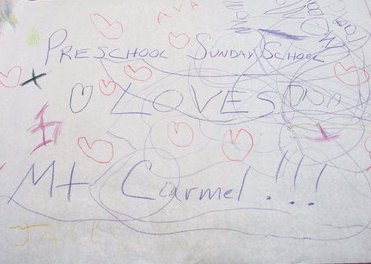 PRESCHOOL SUNDAY SCHOOL
LOVES
Mt Carmel!!!